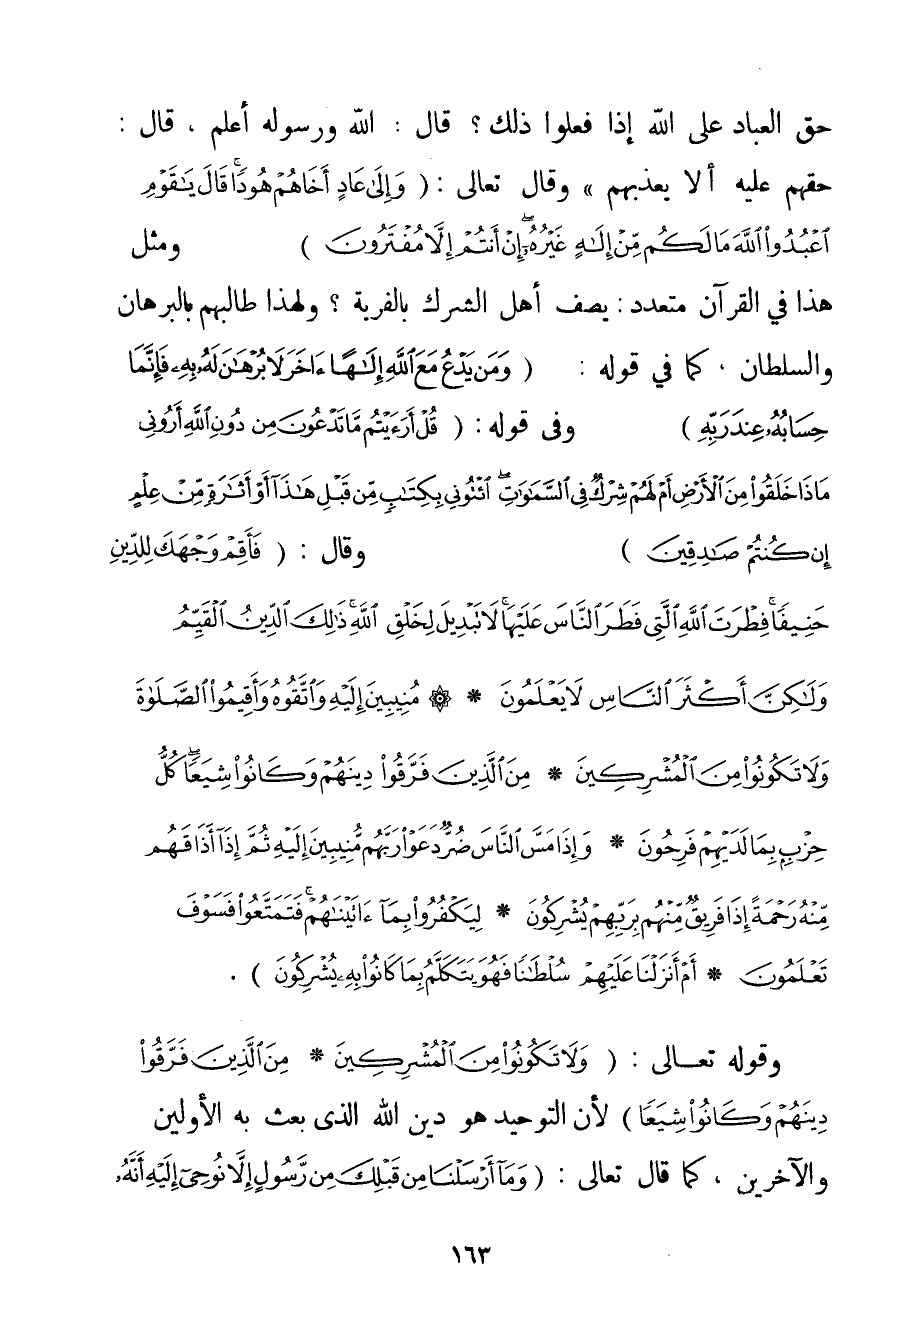 حق العباد على الله إذا فعلوا ذلك ؟ قال : الله ورسوله أعلم ، قال :
حقهم عليه ألا يعذبهم » وقال تعالى : ( وَإِلَىٰ عَادٍ أَخَاهُمْ هُودًا ۚ قَالَ يَٰقَوْمِ
ٱعْبُدُوا۟ ٱللَّهَ مَا لَكُم مِّنْ إِلَٰهٍ غَيْرُهُۥٓ ۖ إِنْ أَنتُمْ إِلَّا مُفْتَرُونَ ) ومثل
هذا في القرآن متعدد : يصف أهل الشرك بالفرية ؟ ولهذا طالبهم بالبرهان
والسلطان ، كما في قوله : ( وَمَن يَدْعُ مَعَ ٱللَّهِ إِلَٰهًا ءَاخَرَ لَا بُرْهَٰنَ لَهُۥ بِهِۦ فَإِنَّمَا
حِسَابُهُۥ عِندَ رَبِّهِ ) وفى قوله : ( قُلْ أَرَءَيْتُم مَّا تَدْعُونَ مِن دُونِ ٱللَّهِ أَرُونِى
مَاذَا خَلَقُوا۟ مِنَ ٱلْأَرْضِ أَمْ لَهُمْ شِرْكٌ فِى ٱلسَّمَٰوَٰتِ ۖ ٱئْتُونِى بِكِتَٰبٍ مِّن قَبْلِ هَٰذَآ أَوْ أَثَٰرَةٍ مِّنْ عِلْمٍ
إِن كُنتُمْ صَٰدِقِينَ ) وقال : ( فَأَقِمْ وَجْهَكَ لِلدِّينِ
حَنِيفًا ۚ فِطْرَتَ ٱللَّهِ ٱلَّتِى فَطَرَ ٱلنَّاسَ عَلَيْهَا ۚ لَا تَبْدِيلَ لِخَلْقِ ٱللَّهِ ۚ ذَٰلِكَ ٱلدِّينُ ٱلْقَيِّمُ
وَلَٰكِنَّ أَكْثَرَ ٱلنَّاسِ لَا يَعْلَمُونَ * ۞ مُنِيبِينَ إِلَيْهِ وَٱتَّقُوهُ وَأَقِيمُوا۟ ٱلصَّلَوٰةَ
وَلَا تَكُونُوا۟ مِنَ ٱلْمُشْرِكِينَ * مِنَ ٱلَّذِينَ فَرَّقُوا۟ دِينَهُمْ وَكَانُوا۟ شِيَعًا ۖ كُلُّ
حِزْبٍۭ بِمَا لَدَيْهِمْ فَرِحُونَ * وَإِذَا مَسَّ ٱلنَّاسَ ضُرٌّ دَعَوْا۟ رَبَّهُم مُّنِيبِينَ إِلَيْهِ ثُمَّ إِذَآ أَذَاقَهُم
مِّنْهُ رَحْمَةً إِذَا فَرِيقٌ مِّنْهُم بِرَبِّهِمْ يُشْرِكُونَ * لِيَكْفُرُوا۟ بِمَآ ءَاتَيْنَٰهُمْ ۚ فَتَمَتَّعُوا۟ فَسَوْفَ
تَعْلَمُونَ * أَمْ أَنزَلْنَا عَلَيْهِمْ سُلْطَٰنًا فَهُوَ يَتَكَلَّمُ بِمَا كَانُوا۟ بِهِۦ يُشْرِكُونَ ) .
وقوله تعالى : ( وَلَا تَكُونُوا۟ مِنَ ٱلْمُشْرِكِينَ * مِنَ ٱلَّذِينَ فَرَّقُوا۟
دِينَهُمْ وَكَانُوا۟ شِيَعًا ) لأن التوحيد هو دين الله الذى بعث به الأولين
والآخرين ، كما قال تعالى : ( وَمَآ أَرْسَلْنَا مِن قَبْلِكَ مِن رَّسُولٍ إِلَّا نُوحِىٓ إِلَيْهِ أَنَّهُۥ
١٦٣